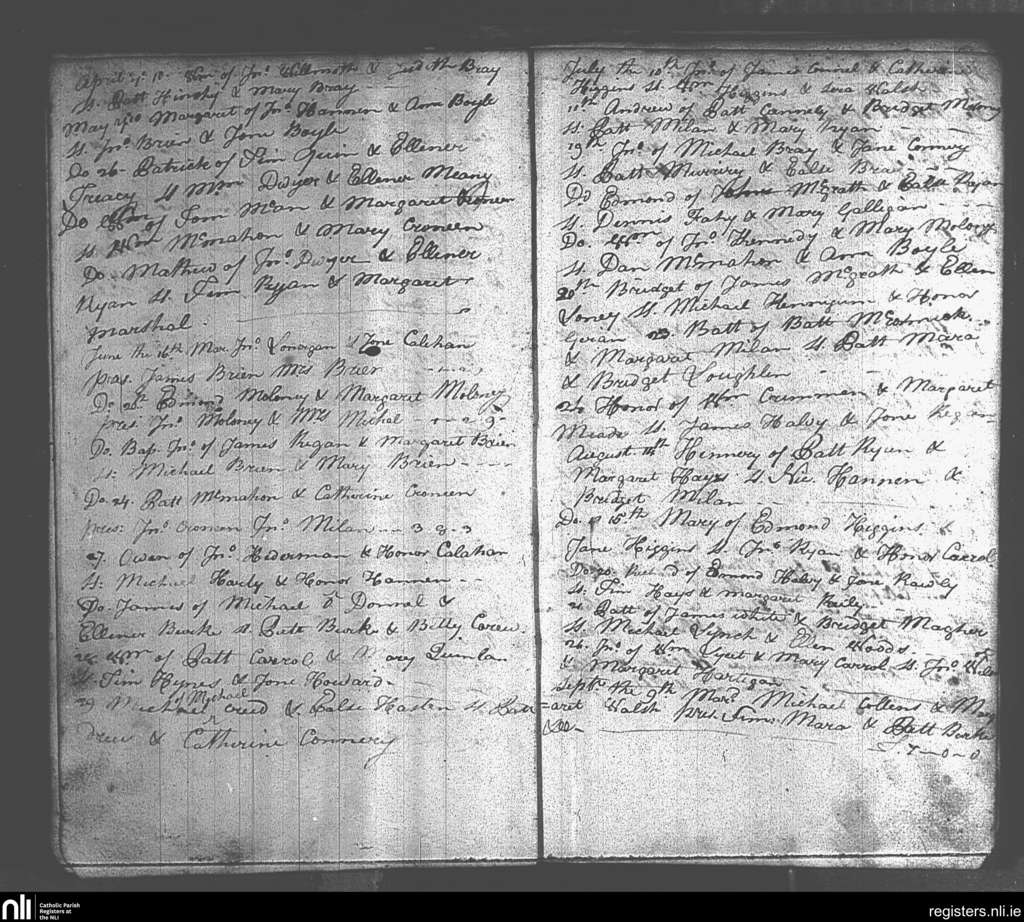 April Wm of Jno. & Judith Bray
St. Patt & Mary Bray
May Margaret of Jno. Hannen & Ann Boyle
St. Jno. Brien & Jone Boyle
Do 26. Patrick of Tim Quin & Ellener
Treacy St Wm Dwyer & Ellener Meany
Do Wm of Tom & Margaret Cronen
St Wm McMahon & Mary Croneen
Do. Mathew of Jno. Dwyer & Ellener
Ryan St. Tim Ryan & Margaret
Marshal.
June the 16th Mar. Jno. Lonergan & Jone Calehan
pres. James Brien Mrs Brien
Do 20th Edmond Moloney & Margaret Moloney
pres. Jno. Moloney & Mrs Michal
Do. Bap. Jno. of James Kegan & Margaret Brien
St. Michael Brien & Mary Brien
Do. 24. Patt McMahon & Catherine Croneen
pres: Jno. Cronen Jno. Milan 3 8 3
27. Owen of Jno. Hiderman & Honor Calahan
St: Michael Hardy & Honor Hannen
Do. James of Michael O Donnal &
Ellener Burke St. Patt Burke & Betty Carew.
28 Wm of Patt Carrol & Mary Quinlan
St. Tim Hynes & Jone Howard.
29 Michael of Michael Creed & Ealse Hasten St. Patt
Drew & Catherine Connery
July the 10th Jno. of James Connel & Catherine
Higgins St. Wm Higgins & Walsh
11th Andrew of Patt Connely & Bridget Molony
St: Patt Milan & Mary Ryan
19th Jno. of Michael Bray & Jane Connery
St. Patt & Ealse Bray
Do Edmond of McGrath & Ealse Ryan
St. Dennis Fahy & Mary Galligan
Do. Wm of Jno. Kennedy & Mary Molony
St. Dan McMahon & Ann Boyle
20th Bridget of James McGrath & Ellen
Loney St. Michael & Honor
23. Batt of Batt McCormick.
& Margarat Milan St. Patt Mara
& Bridget Loughlen
26 Honor of Wm Crummen & Margaret
Meade St. James Halvy & Jone Regan
August 11th Hennery of Patt Ryan &
Margaret Hays St. Nic. Hannen &
Bridget Milan
Do. 15.th Mary of Edmond Higgins &
Jane Higgins St. Jno. Ryan & Honor Carrol
Do 20 of Edmond Halvy & Jone Rawly
St. Tim Hays & Margaret Reily
21 Patt of James White & Bridget Magher
St. Michael Lynch & Ellen Woods.
26. Jno. of Wm & Mary Carrol St. Jno.
& Margaret Hartigan
Septr. the 9th Mard. Michael Collens & Mar
=garet Walsh pres. Tim: Mara & Patt Burke
7-0-0
nli
Catholic Parish
Registers at
the NLI
registers.nli.ie